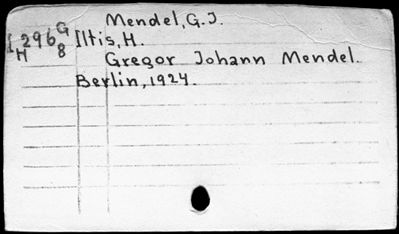 Mendel, G. J.
I 296 G Iltis, H.
H 8 Gregor Johann Mendel.
Berlin, 1924.